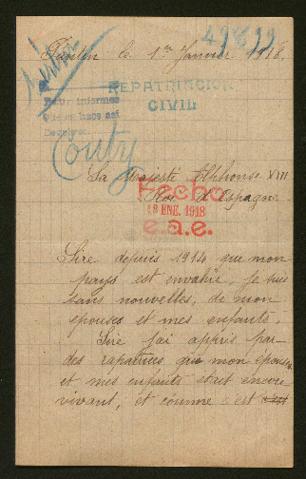 49899
le 1er Janvier 1918
REPATRIACION
CIVIL
Couty
Sa Majesté Alphonse XIII
Roi d'Espagne
Fecho
18 ENE. 1918
e.a.e.
Sire depuis 1914 que mon
pays est envahie, je suis
sans nouvelles, de mon
epouse et mes enfants.
Sire j'ai appris par
des rapatriés que mon épouse
et mes enfants etait encore
vivant, et comme c'est